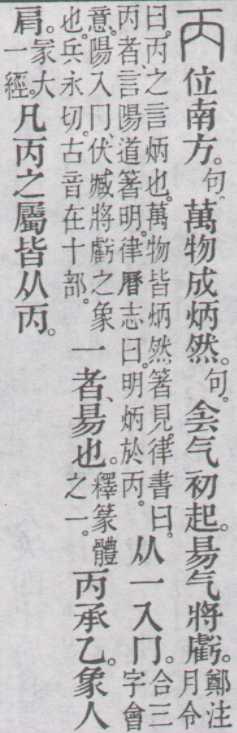 丙位南方。句。萬物成炳然。句。侌气初起。昜气將虧。鄭注月令
曰。丙之言炳也。萬物皆炳然箸見。律書曰。丙者。言陽道箸明。律曆志曰。明炳於丙。从一入冂。合三字會
意。陽入冂。伏臧將虧之象也。兵永切。古音在十部。一者、昜也。釋篆體之一。丙承乙。象人
肩。冡大一經。凡丙之屬皆从丙。